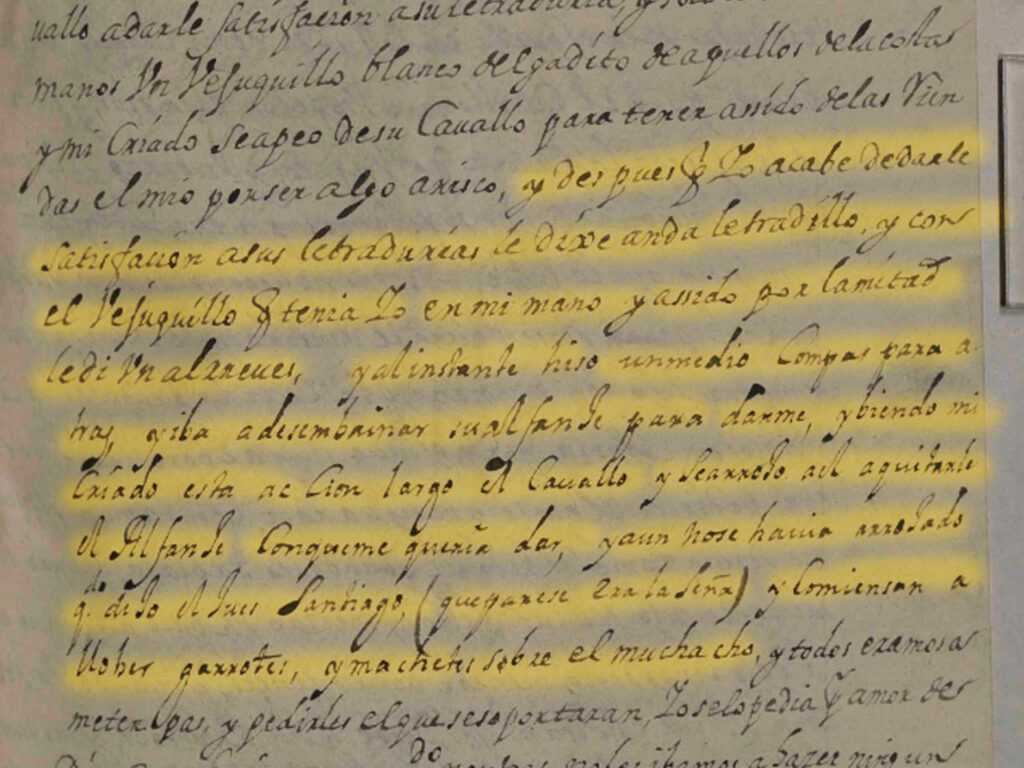 uallo adarle satisfacion asu letraduria, y
manos Vn Vejuquillo blanco delgadito de aquellos delacostas
y mi Criado seapeo desu Cauallo para tener assido delas Rien
das el mio porser algo arisco, y des pues q̃ Io acabe dedarle
satisfacion asus letradurias le dixe anda letradillo, y con
el Vejuquillo q̃ tenia Io en mi mano y assido por lamitad
ledi Vn alrreues, yalinstante hiso unmedio Compas para a
tras, yiba adesembainar sualfanje para darme, ybiendo mi
Criado esta ac Cion largo el Cauallo y searrojo ael aquitarle
el Alfanje Conqueme queria dar, yaun nose hauia arrojado
q.do dijo el Jues Santiago, (queparese eralaseña) y Comiensan a
llober garrotes, ymachetes sobre el muchacho, y todos eramos a
meter pas, y pedirles elquesesoportaran, Io selopedia p̃ amor de